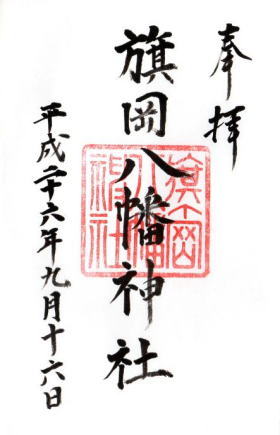 奉拝
旗岡八幡神社
平成二十六年九月十六日
旗岡八幡神社